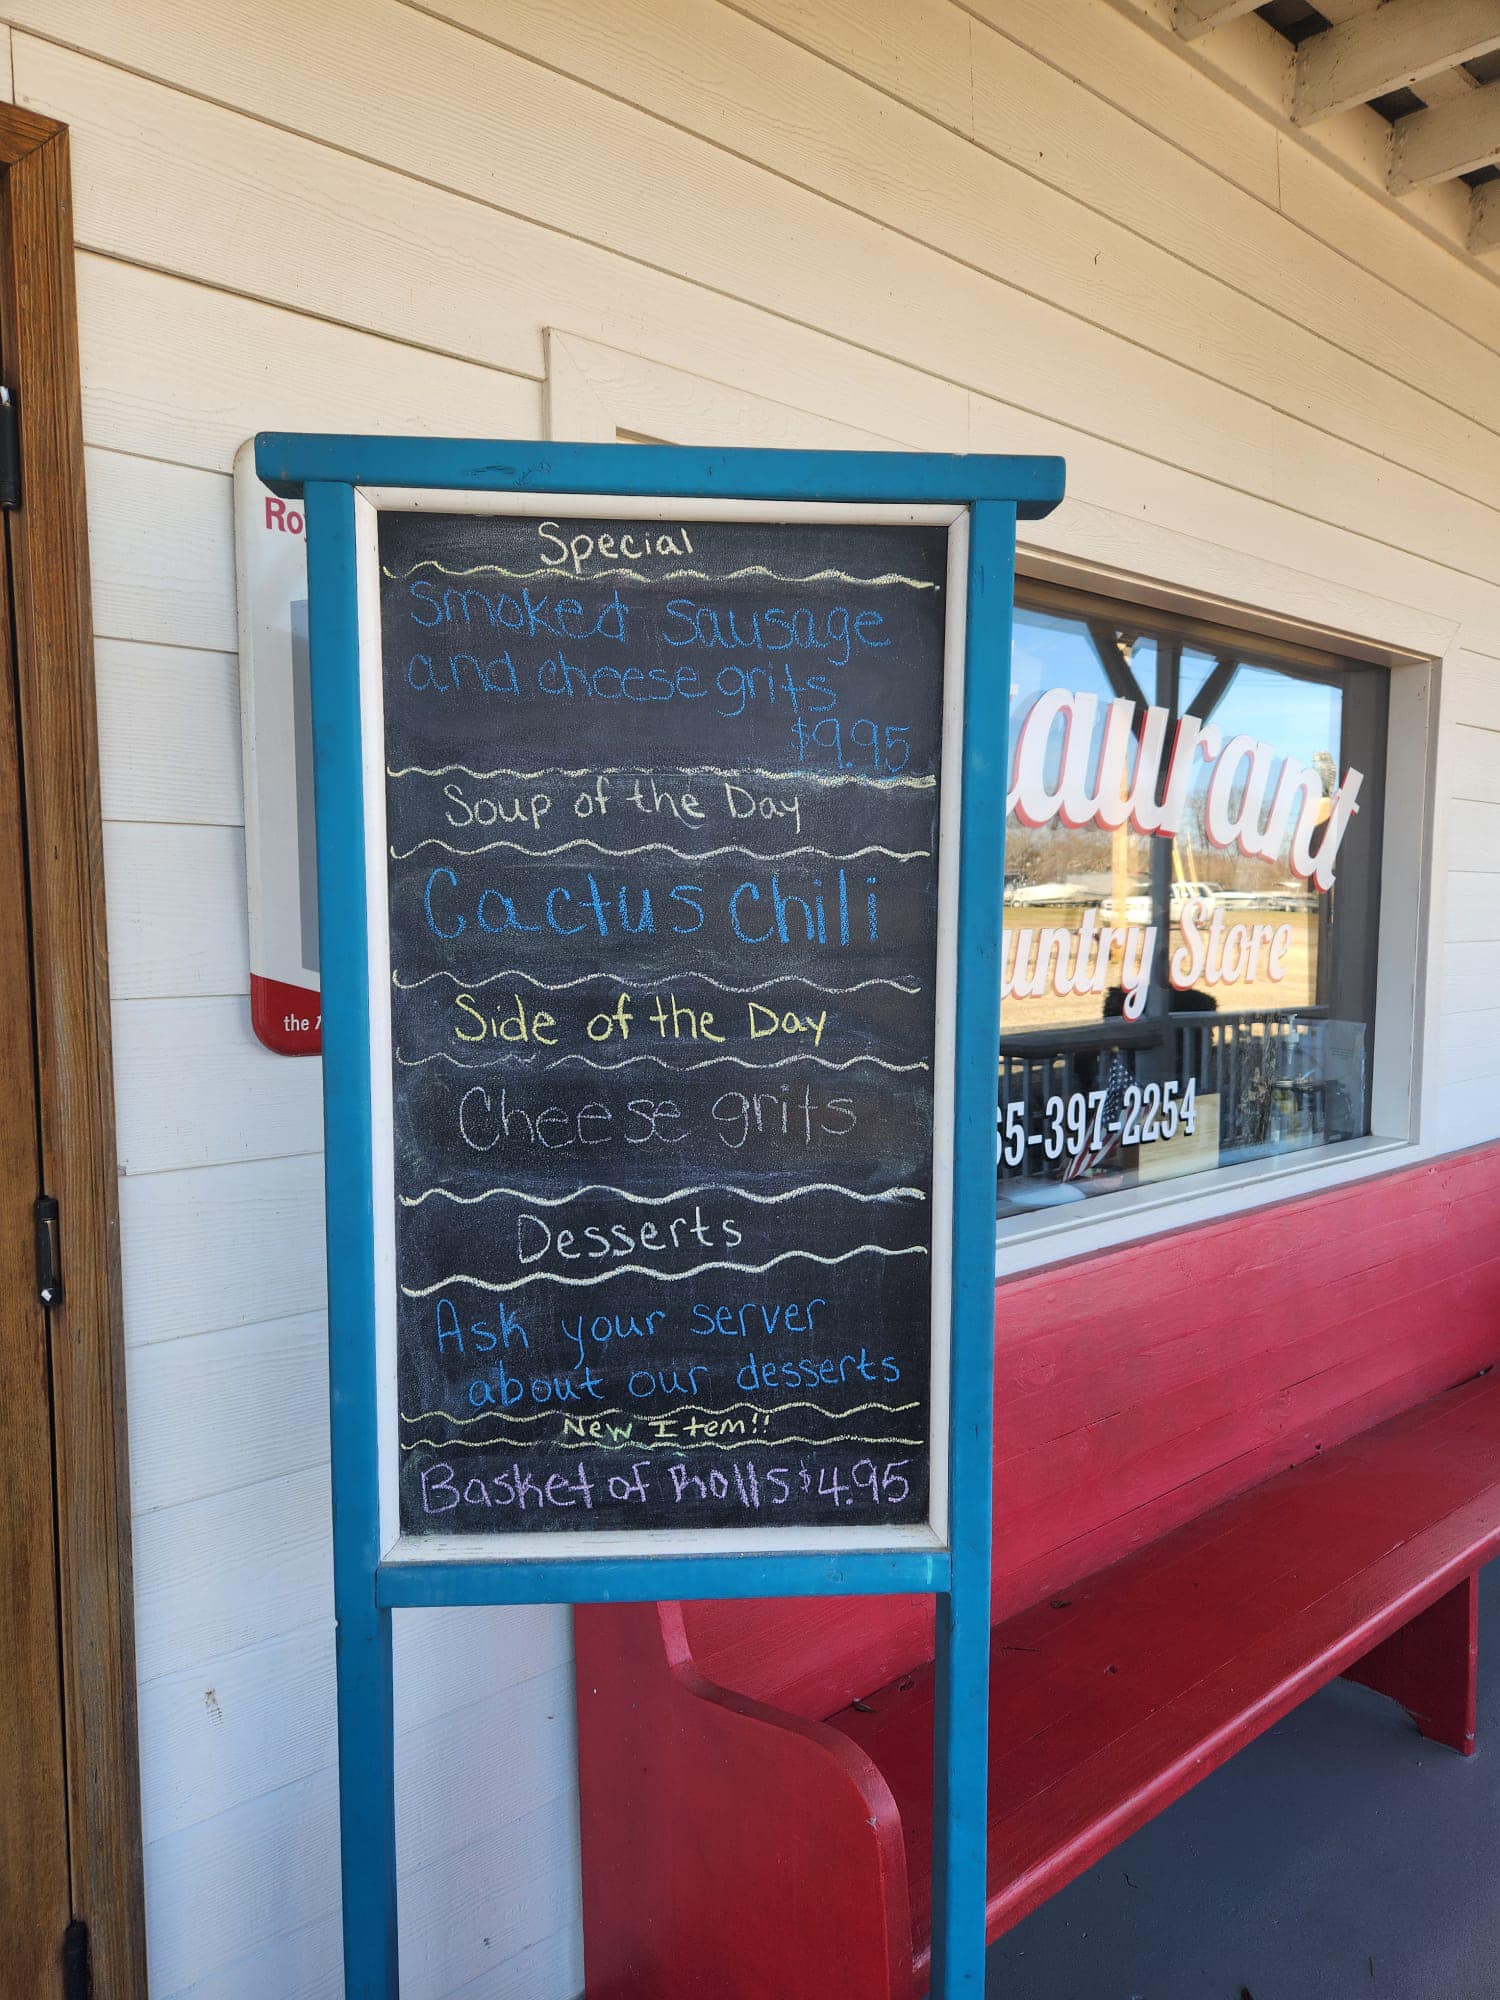 Special
Smoked Sausage
and cheese grits
$9.95
Soup of the Day
Cactus Chili
Side of the Day
Cheese grits
Desserts
Ask your server
about our desserts
New Item!!
Basket of Rolls $4.95
Ro
the
aurant
untry Store
65-397-2254